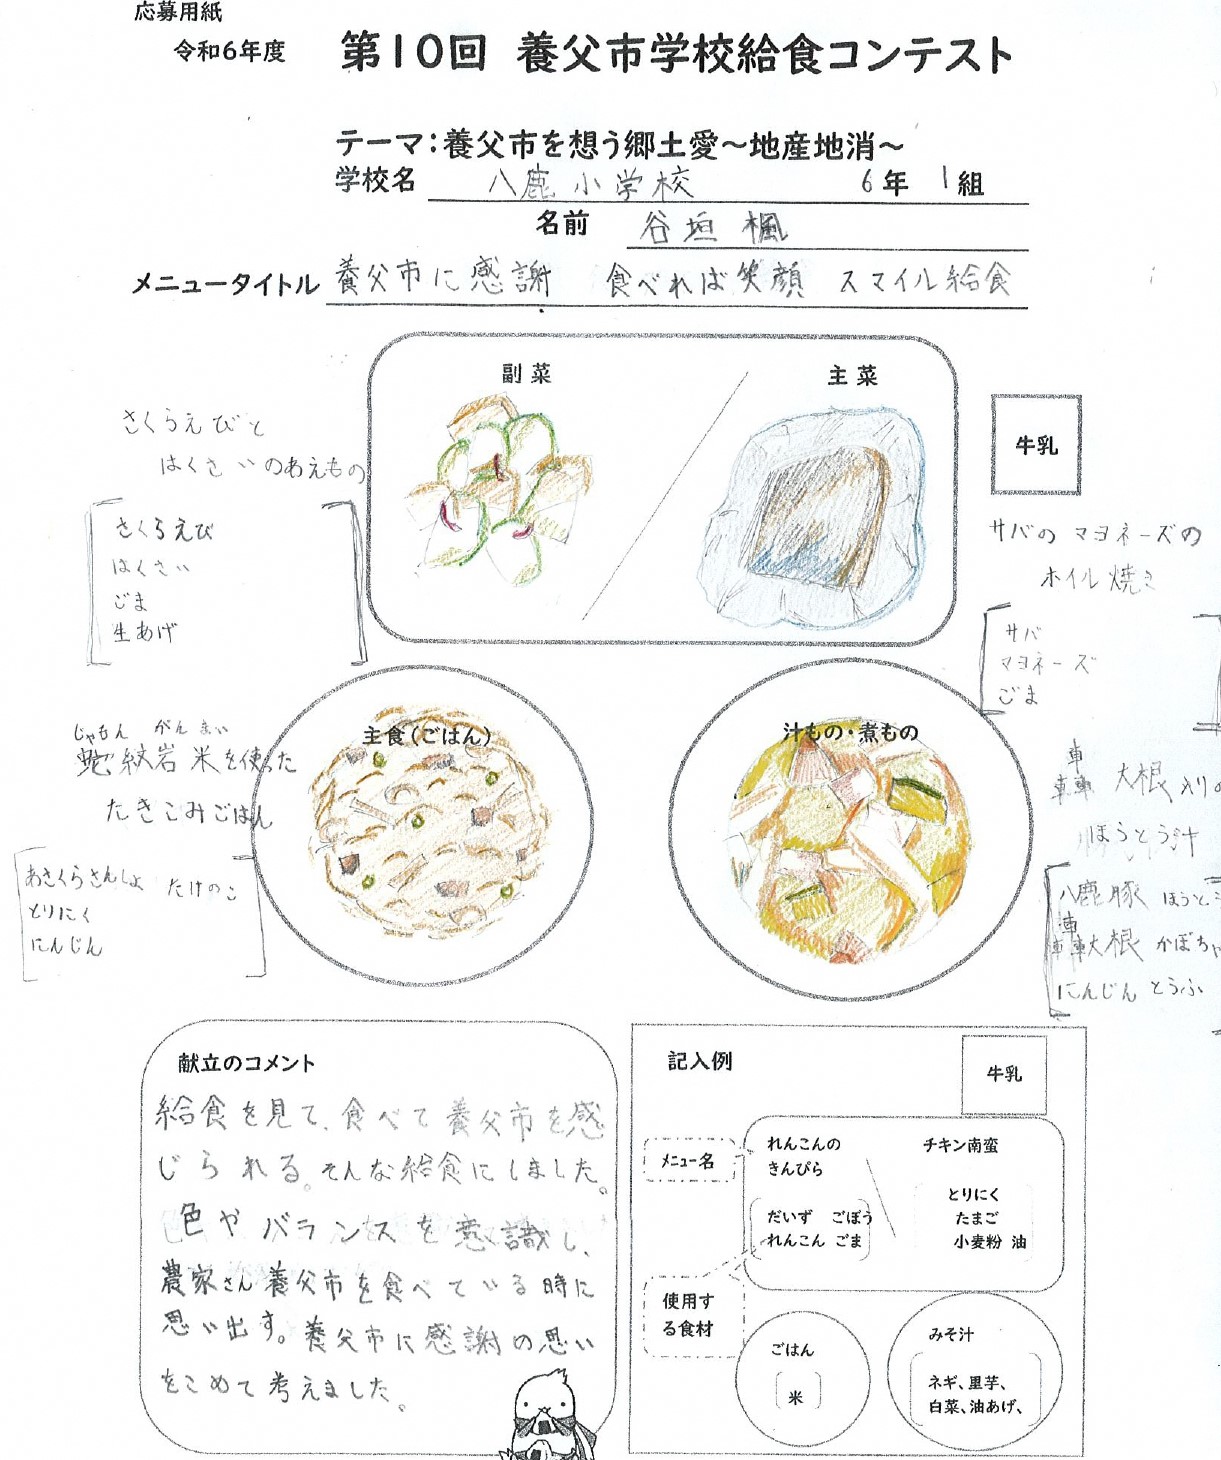 応募用紙
令和6年度 第10回 養父市学校給食コンテスト
テーマ:養父市を想う郷土愛~地産地消~
学校名 八鹿小学校 6年 1組
名前 谷垣 楓
メニュータイトル 養父市に感謝 食べれば笑顔 スマイル給食
副菜
主菜
牛乳
さくらえびと
はくさいのあえもの
さくらえび
はくさい
ごま
生あげ
サバの マヨネーズの
ホイル焼き
サバ
マヨネーズ
ごま
主食(ごはん)
じゃもん がんまい
蛇紋岩米を使った
たきこみごはん
あさくらさんしょ たけのこ
とりにく
にんじん
汁もの・煮もの
轟大根入りの
ほうとう汁
八鹿豚 ほうとう
轟大根 かぼちゃ
にんじん とうふ
献立のコメント
給食を見て、食べて養父市を感
じられる。そんな給食にしました。
色やバランスを意識し、
農家さん養父市を食べている時に
思い出す。養父市に感謝の思い
をこめて考えました。
記入例
牛乳
メニュー名
れんこんの
きんぴら
だいず ごぼう
れんこん ごま
チキン南蛮
とりにく
たまご
小麦粉 油
使用す
る食材
ごはん
米
みそ汁
ネギ、里芋、
白菜、油あげ、